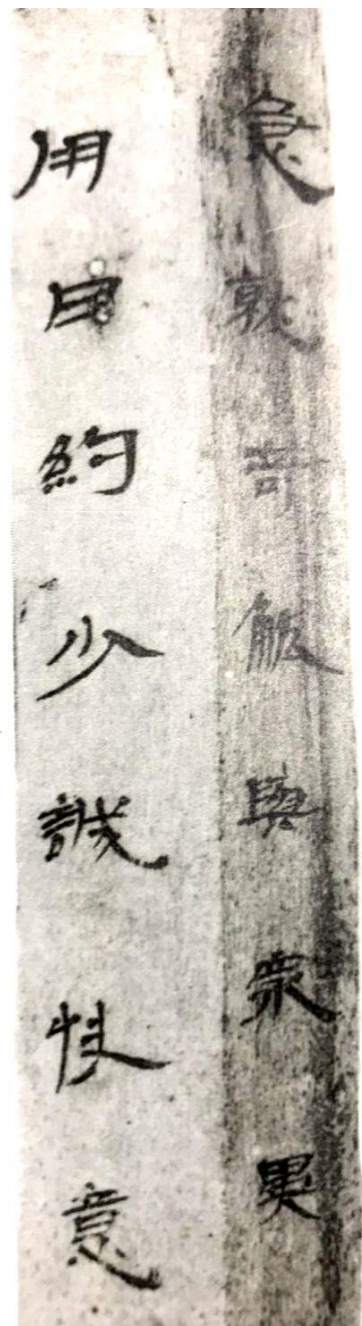 急就奇觚與衆異
用日約少誠快意